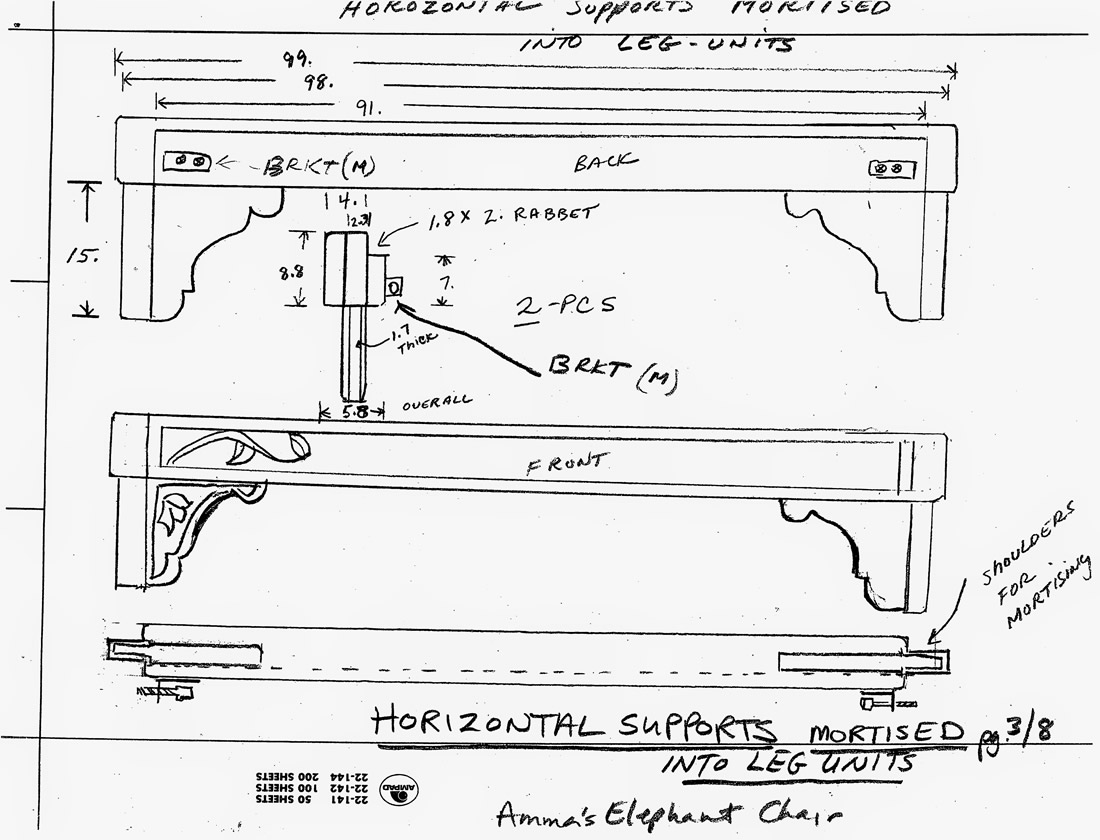 HOROZONTAL SUPPORTS MORTISED
INTO LEG-UNITS
99.
98.
91.
BRKT (M)
BACK
4.1
1.8 X 2. RABBET
15.
8.8
7.
2-PCS
1.7
THICK
BRKT (M)
5.8
OVERALL
FRONT
SHOULDERS
FOR
MORTISING
HORIZONTAL SUPPORTS MORTISED pg. 3/8
INTO LEG UNITS
22-141 50 SHEETS
22-142 100 SHEETS
22-144 200 SHEETS
AMPAD
Amma's Elephant Chair